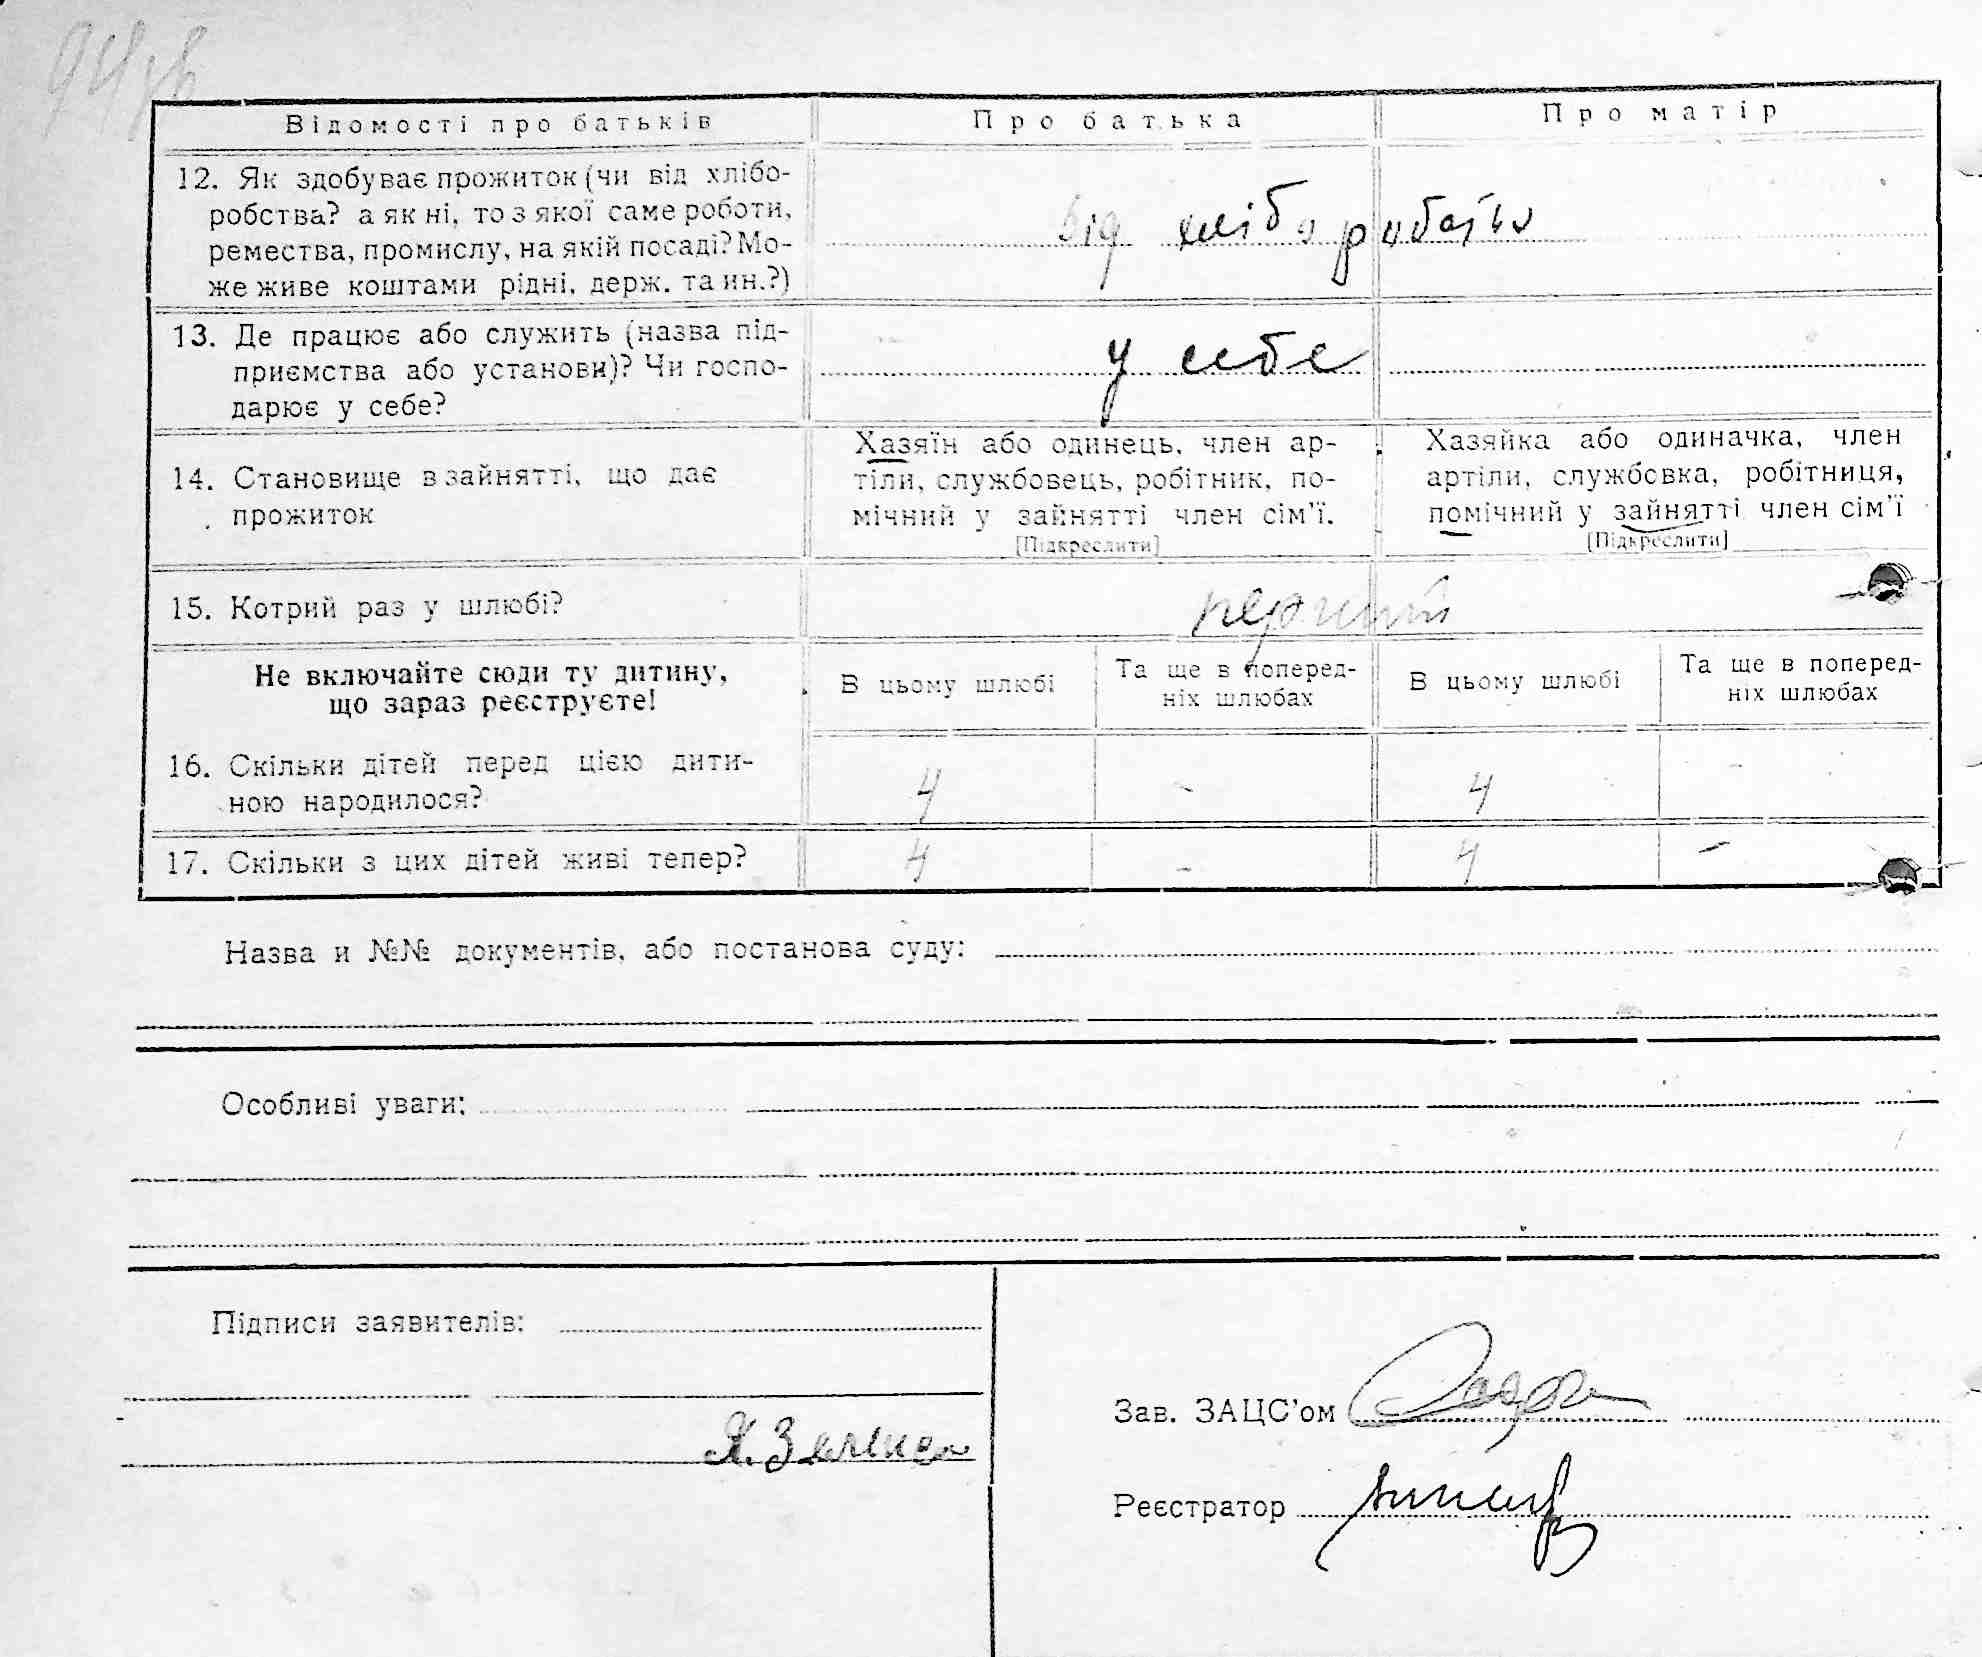 94 зв
Відомості про батьків
Про батька
Про матір
12. Як здобуває прожиток (чи від хлібо-
робства? а як ні, то з якої саме роботи,
ремества, промислу, на якій посаді? Мо-
же живе коштами рідні, держ. та ин.?)
від хліборобства
13. Де працює або служить (назва під-
приємства або установи)? Чи госпо-
дарює у себе?
у себе
14. Становище в зайнятті, що дає
прожиток
Хазяїн або одинець, член ар-
тіли, службовець, робітник, по-
мічний у зайнятті член сім'ї.
[Підкреслити]
Хазяйка або одиначка, член
артіли, службовка, робітниця,
помічний у зайнятті член сім'ї
[Підкреслити]
15. Котрий раз у шлюбі?
перший
Не включайте сюди ту дитину,
що зараз реєструєте!
В цьому шлюбі
Та ще в поперед-
ніх шлюбах
В цьому шлюбі
Та ще в поперед-
ніх шлюбах
16. Скільки дітей перед цією дити-
ною народилося?
4 - 4 -
17. Скільки з цих дітей живі тепер?
4 - 4 -
Назва и №№ документів, або постанова суду:
Особливі уваги:
Підписи заявителів:
Зав. ЗАЦС'ом
Реєстратор